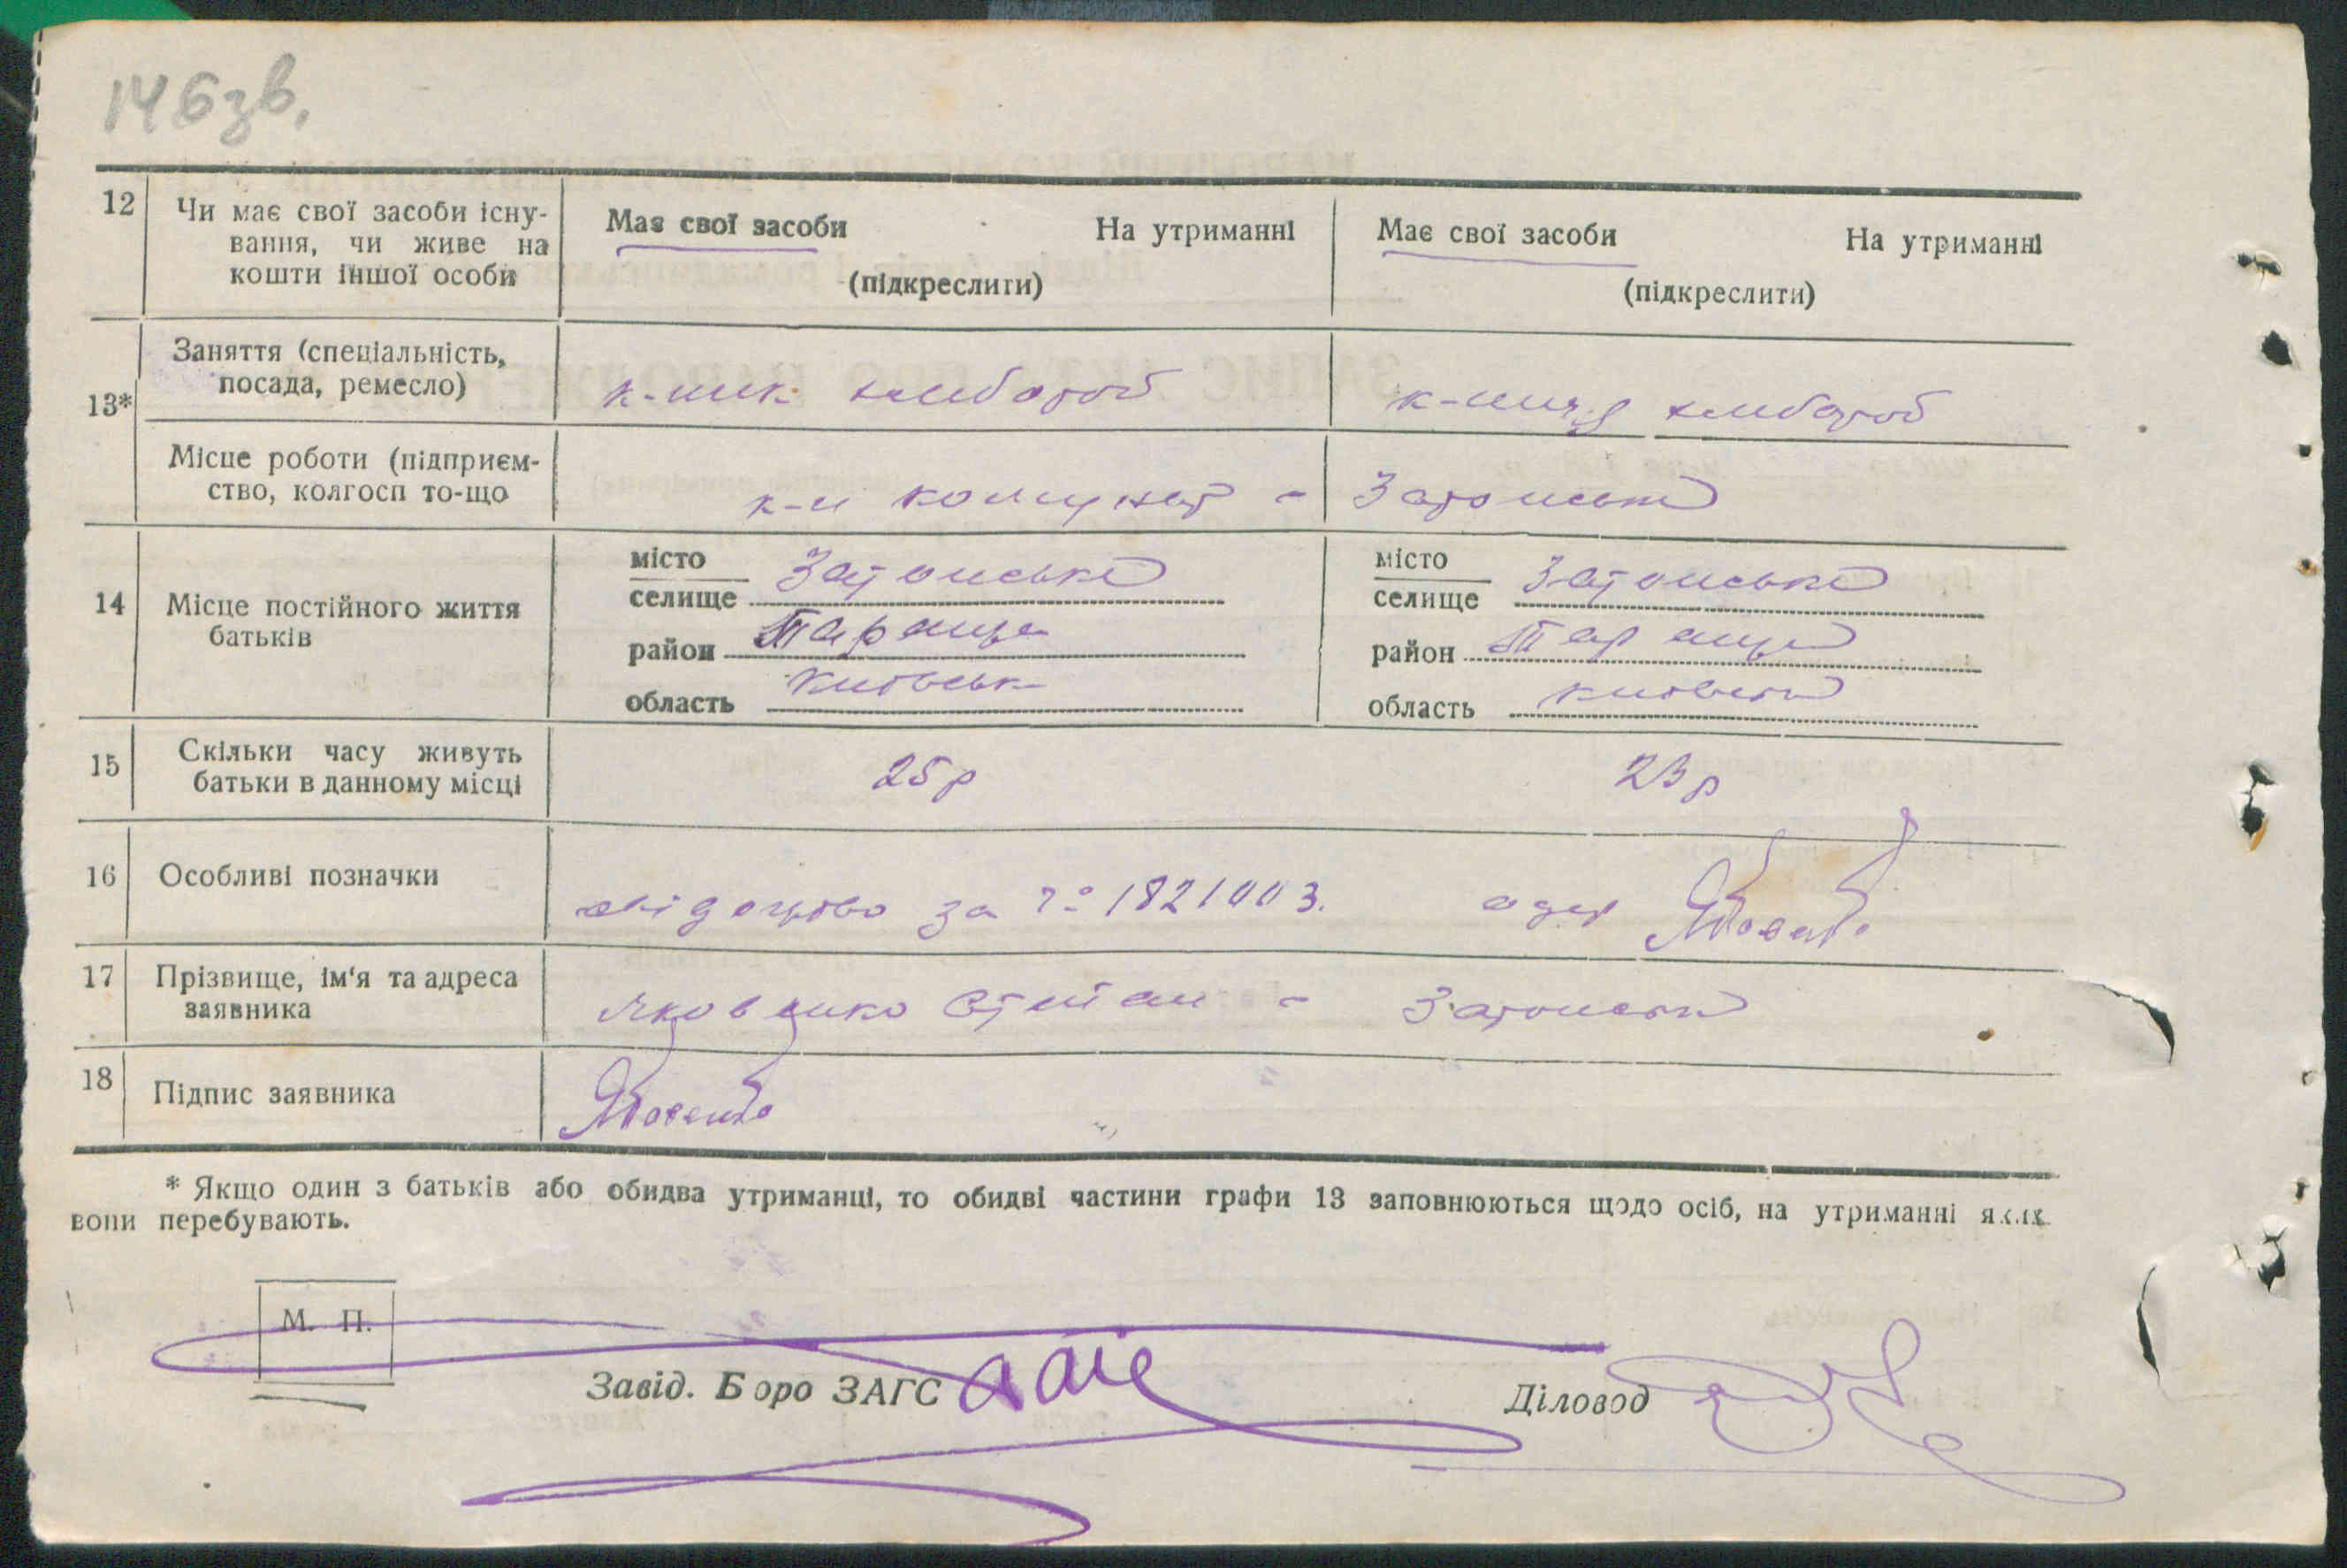 146зв.
12 Чи має свої засоби існу-
вання, чи живе на
кошти іншої особи
Має свої засоби На утриманні
(підкреслити)
Має свої засоби На утриманні
(підкреслити)
13* Заняття (спеціальність,
посада, ремесло)
к-ник хлібороб
к-ниця хлібороб
Місце роботи (підприєм-
ство, колгосп то-що
к-п комунар - Затонськ
14 Місце постійного життя
батьків
місто
селище Затонське
район Тараща
область Київськ
місто
селище Затонське
район Тараща
область Київськ
15 Скільки часу живуть
батьки в данному місці
25р
23р
16 Особливі позначки
свідоцтво за № 1821003. одер
17 Прізвище, ім'я та адреса
заявника
Яковенко Степан - Затонськ
18 Підпис заявника
* Якщо один з батьків або обидва утриманці, то обидві частини графи 13 заповнюються щодо осіб, на утриманні яких
вони перебувають.
М. П.
Завід. Бюро ЗАГС
Діловод